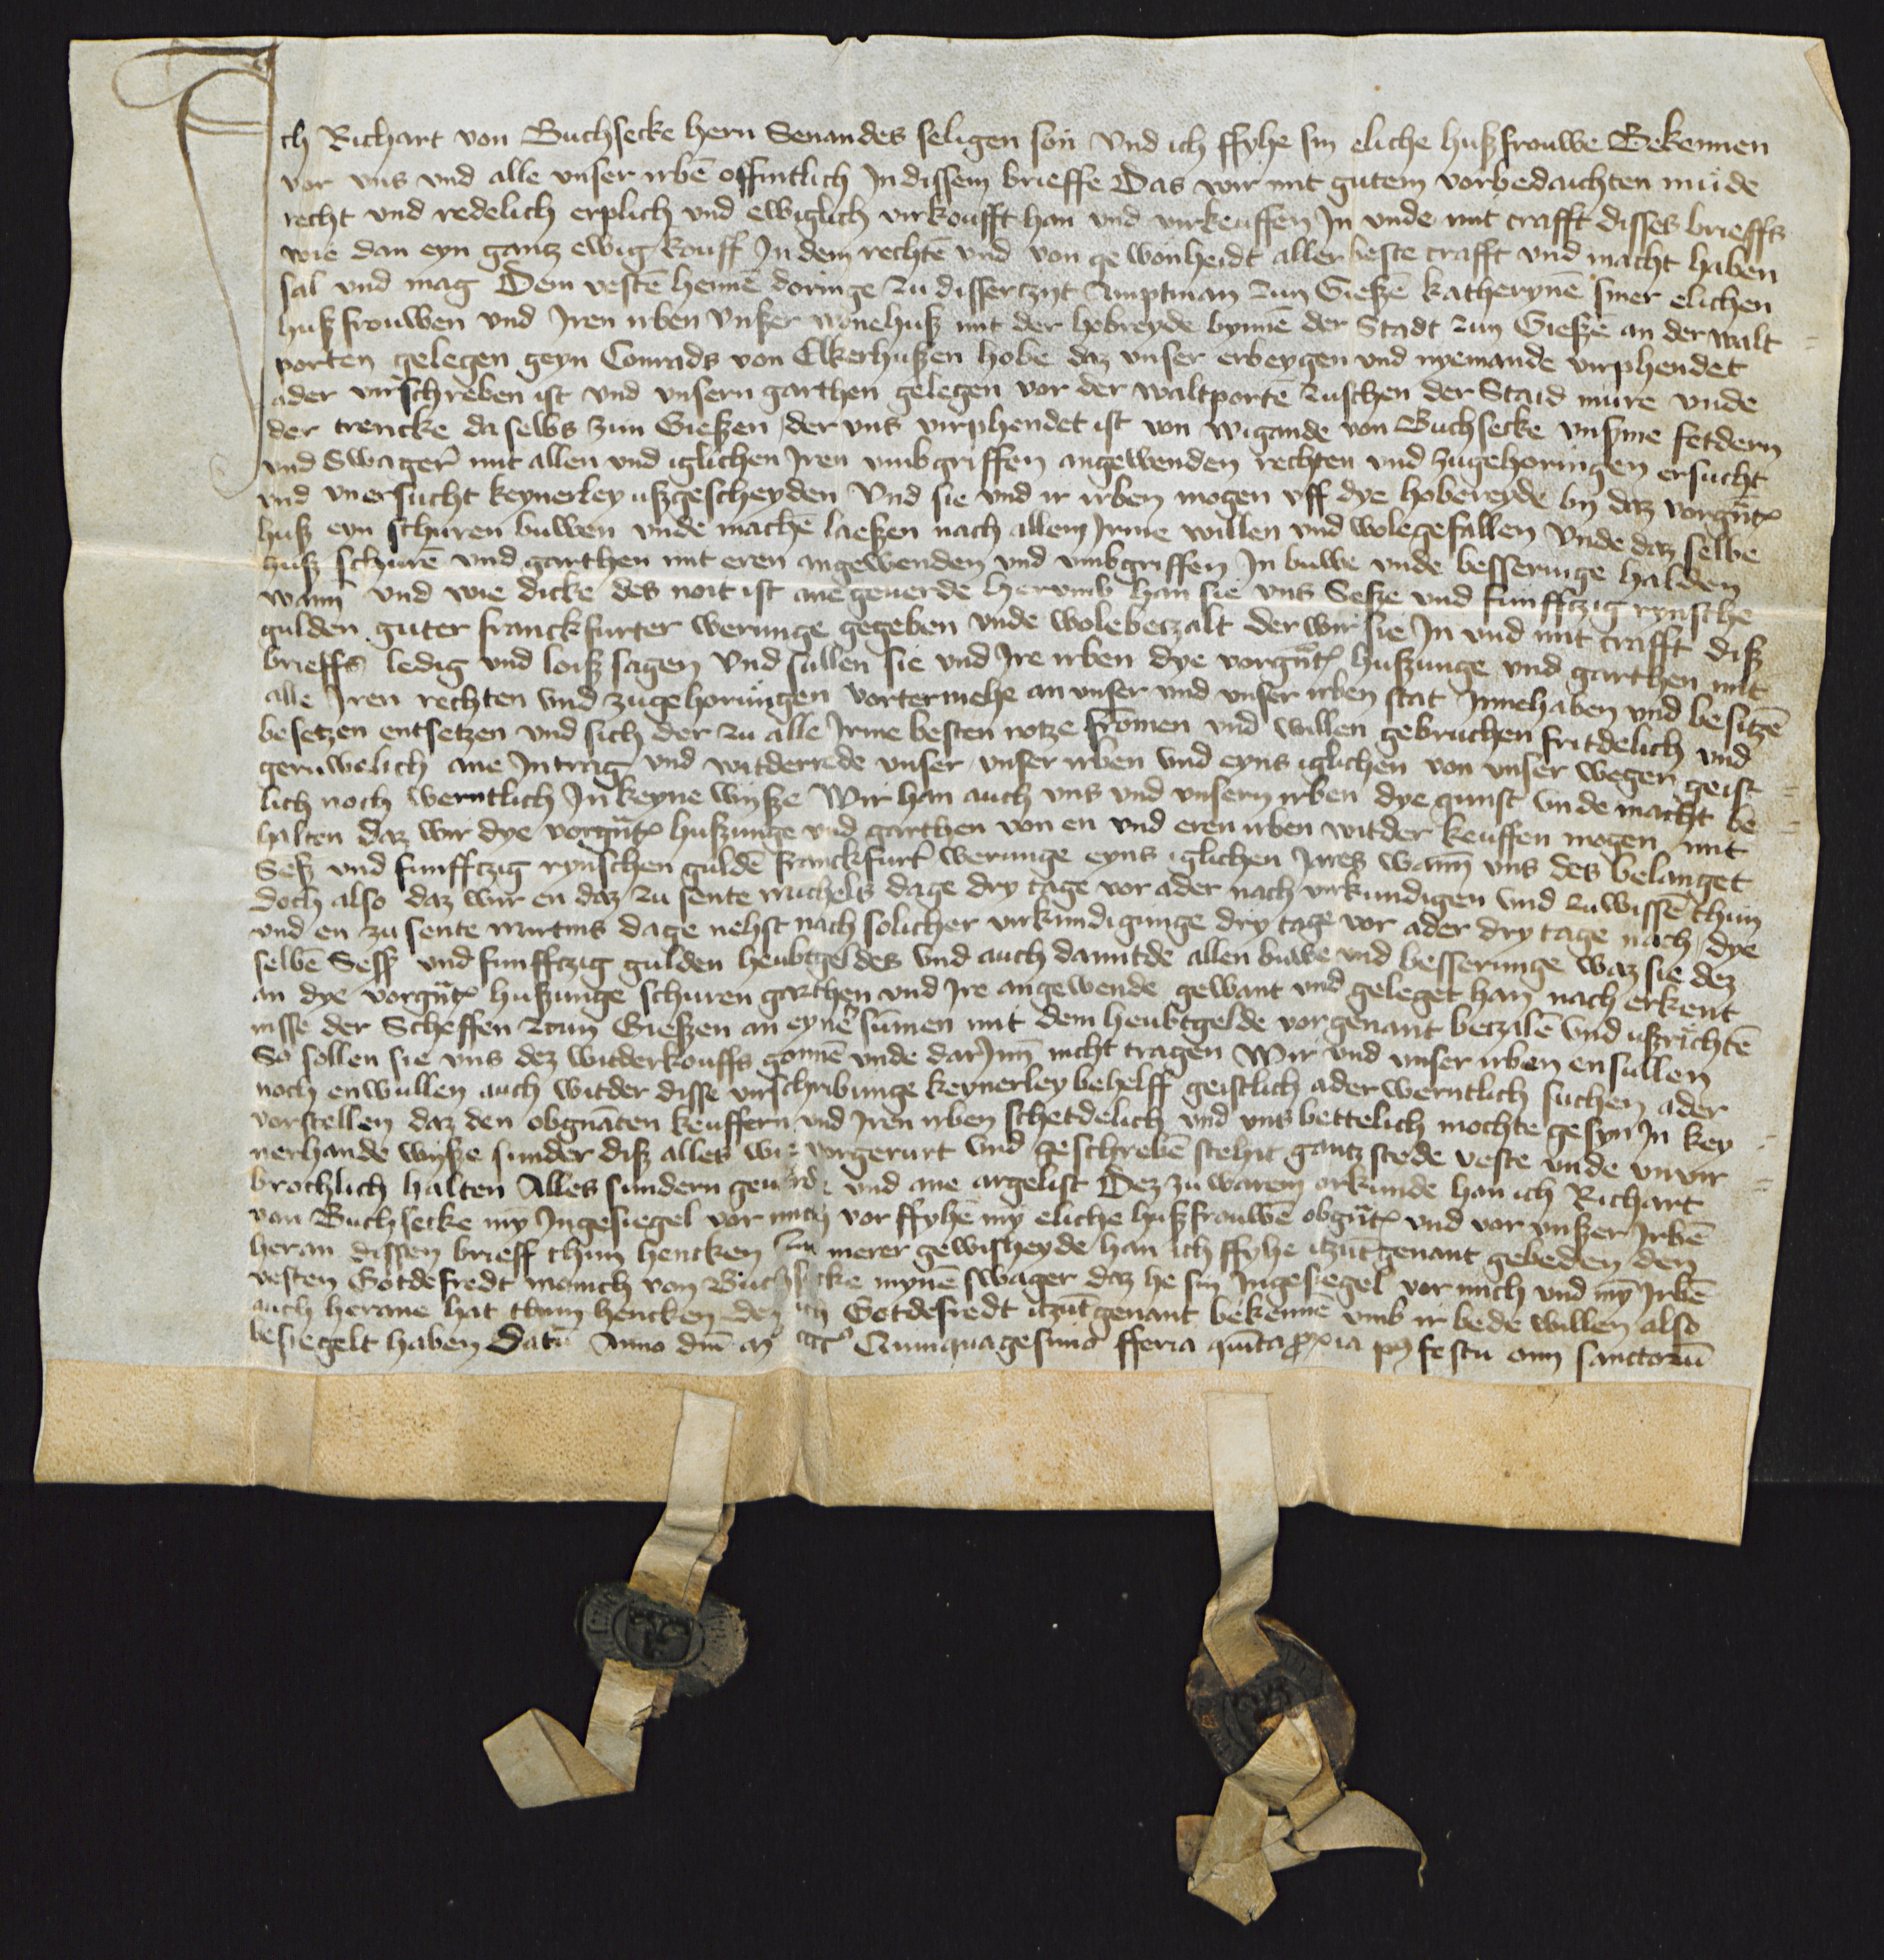 Ich Richart von Buchsecke hern Senandes seligen son Vnd ich ffyhe sin eliche hußfrouwe Bekennen
vor vns vnd alle vnser irbē offintlich Jn dissem brieffe Das wir mit gutem vorbedaichten mude
recht vnd redelich erplich vnd ewiglich virkoufft han vnd virkeuffen Jn vnde mit crafft disses brieffs
wie dan eyn gantz ewig kouff Jn dem rechtē vnd von gewonheidt aller beste crafft vnd macht haben
sal vnd mag Dem vestē hennē doringe zu disserczyt Amptman zun Gießē katherynē siner elichen
hußfrouwen vnd Jren irben Vnßer wonehuß mit der hobreyde bynnē der Stadt zun Gießē an der walt
porten gelegen geyn Conrads von Elkerhußen hobe daz vnser erbeygen vnd nyemande virphendet
ader virschreben ist vnd vnsern garthen gelegen vor der waltportē zuschen der Staid mure vnde
der trencke daselbs zun Gießen der vns virphendet ist von wigande von Buchsecke vnsyme fetdern
vnd Swager mit allen vnd iglichen Jren vmbgriffen angewenden rechten vnd zugehoringen ersucht
vnd vnersucht keynerley ußgescheyden Vnd sie vnd ir irben mogen vff dye hobereyde by daz vorgn̄t
huß eyn schuren buwen vnde machē laeßen nach allem Jrme willen vnd wolegefallen Vnde daz selbe
huß schurē vnd garthen mit eren angewenden vnd vmbgriffen Jn buwe vnde besseringe halden
wann vnd wie dicke des noit ist ane geuerde hervmb han sie vns Seße vnd funfftzig rynsche
gulden guter franckfurter werunge gegeben vnde wolebetzalt der wir sie Jn vnd mit crafft diß
brieffs ledig vnd loiß sagen Vnd sullen sie vnd Jre irben dye vorgn̄t hußunge vnd garthen mit
alle Jren rechten vnd zugehoringen vortermehe an vnser vnd vnser irben stat Jnnehaben vnd besitzē
besetzen entsetzen vnd sich der zu alle Jrme besten notze fromen vnd willen gebruchen fritdelich vnd
geruwelich ane Jntrag vnd witderrede vnser vnser irben vnd eyns iglichen von vnser wegen geist
lich noch werntlich Jn keyne wyße Wir han auch vns vnd vnsern irben dye gunst vnde macht be
halten daz wir dye vorgn̄t hußunge vnd garthen von en vnd eren irben witder keuffen mogen mit
Seß vnd funfftzig rynschen guldē franckfurt̄ werunge eyns iglichen Jares wann vns des belanget
doch also daz wir en daz zu sente michels dage dry tage vor ader nach virkundigen vnd zuwissē thun
vnd en zu sente mirtins dage nehst nach solicher virkundigunge dry tage vor ader dry tage nach dye
selbē Seß vnd funfftzig gulden heubtgeldes vnd auch damitde allen buwe vnd besserunge waz sie dez
an dye vorgn̄t hußunge schuren garthen vnd Jre angewende gewant vnd geleget han nach erkent
nisse der Scheffen zun Gießen an eynē sūmen mit dem heubtgelde vorgenant betzalē vnd ußrichtē
So sollen sie vns dez witderkouffs gonnē vnde dar Jnn nicht tragen Wir vnd vnser irben ensullen
noch enwullen auch witder disse virschribunge keynerley behelff geistlich ader werntlich suchen ader
vorstellen daz den obgnāten keuffern vnd Jren irben schetdelich vnd vns bettelich mochte gesyn Jn key
nerhande wyße sunder diß alles wie vorgerurt vnd geschrebē stehit gantz stede veste vnde vnvir
brochlich halten Alles sundern geuerde vnd ane argelist Dez zu warem orkunde han ich Richart
von Buchsecke my Jngesiegel vor mich vor ffyhē my eliche hußfrouwē obgn̄t vnd vor vnßer Jrbē
heran dissen brieff thun hencken zu merer gewißheyde han ich ffyhe itzūtgenant gebeden den
vesten Gotdefredt monich von Buchsecke mynē swager daz he sin Jngesiegel vor mich vnd my Jrbē
auch herane hat thun hencken dez ich Gotdefredt itzūtgenant bekennē vmb ir bede willen also
besiegelt haben Datū Anno dm̄ M cccc Quinquagesimo fferia quīta p̄xia p9 festū om̄ sanctorū